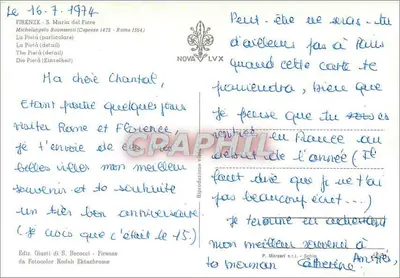 Le 16.7.1974
FIRENZE - S. Maria del Fiore
Michelangelo Buonarroti (Caprese 1475 - Roma 1564)
La Pietà (particolare)
La Pietà (détail)
The Pietà (detail)
Die Pietà (Einzelheit)
NOVA LUX
Ma chère Chantal,
Etant partie quelques jours
visiter Rome et Florence,
je t'envoie de ces
belles villes mon meilleur
souvenir et te souhaite
un très bon anniversaire
(je crois que c'était le 15.)
Ediz. Giusti di S. Becocci - Firenze
da Fotocolor Kodak Ektachrome
Peut-être ne seras-tu
d'ailleurs pas à Paris
quand cette carte te
parviendra, bien que
je pense que tu sois
rentrée en France au
début de l'année (Il
faut dire que je ne t'ai
pas beaucoup écrit...)
Je termine en adressant
mon meilleur souvenir à
ta maman Catherine
CPAPHIL